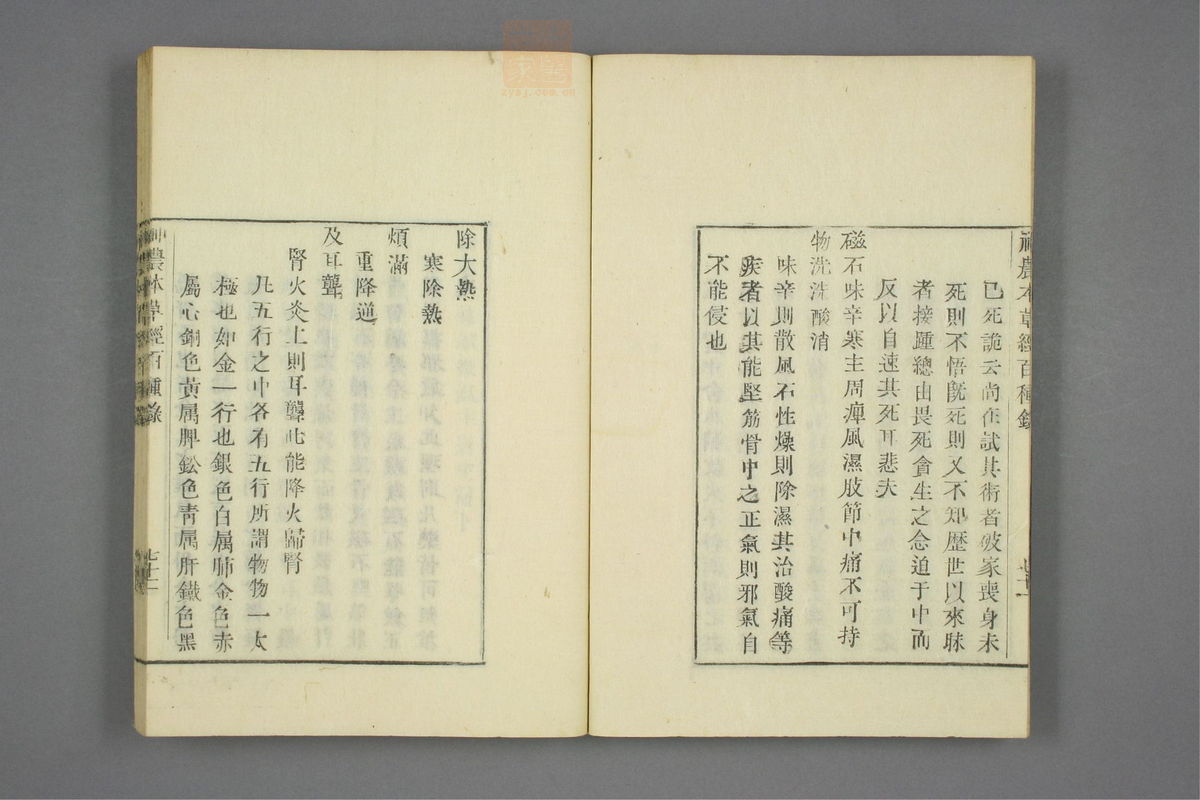 神農本草經百種錄
已死詭云尚在試其術者破家喪身未
死則不悟旣死則又不知歷世以來昧
者接踵總由畏死貪生之念迫于中而
反以自速其死耳悲夫
磁石味辛寒主周痺風濕肢節中痛不可持
物洗洗酸消
味辛則散風石性燥則除濕其治酸痛等
疾者以其能堅筋骨中之正氣則邪氣自
不能侵也
除大熱
寒除熱
煩滿
重降逆
及耳聾
腎火炎上則耳聾此能降火歸腎
凡五行之中各有五行所謂物物一太
極也如金一行也銀色白属肺金色赤
屬心銅色黄属脾鉛色靑属肝鐵色黑
神農本草經百種錄
zysj.com.cn